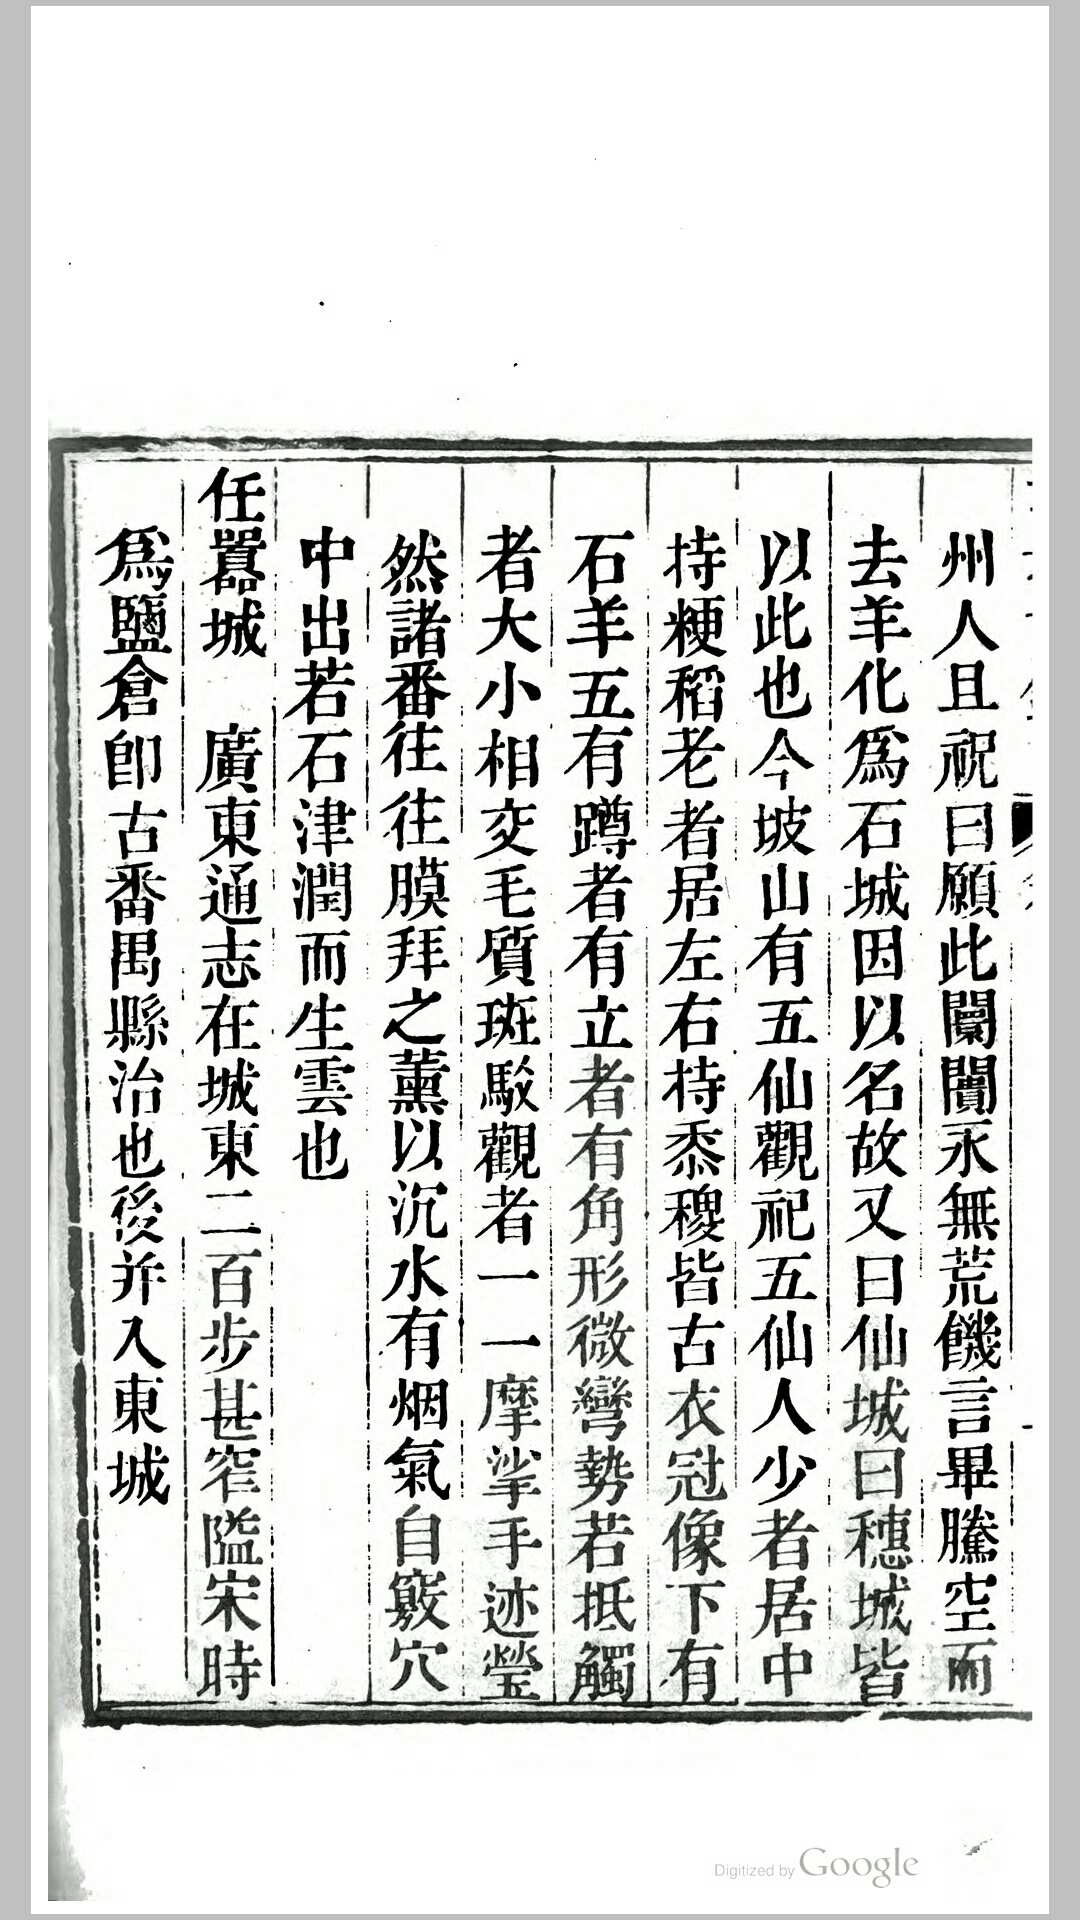 州人且祝曰願此闤闠永無荒饑言畢騰空而
去羊化爲石城因以名故又曰仙城曰穗城皆
以此也今坡山有五仙觀祀五仙人少者居中
持粳稻老者居左右持黍稷皆古衣冠像下有
石羊五有蹲者有立者有角形微彎勢若抵觸
者大小相交毛質斑駁觀者一一摩挲手迹瑩
然諸番往往膜拜之薰以沉水有烟氣自竅穴
中出若石津潤而生雲也
任囂城 廣東通志在城東二百步甚窄隘宋時
爲鹽倉卽古番禺縣治也後并入東城
Digitized by Google